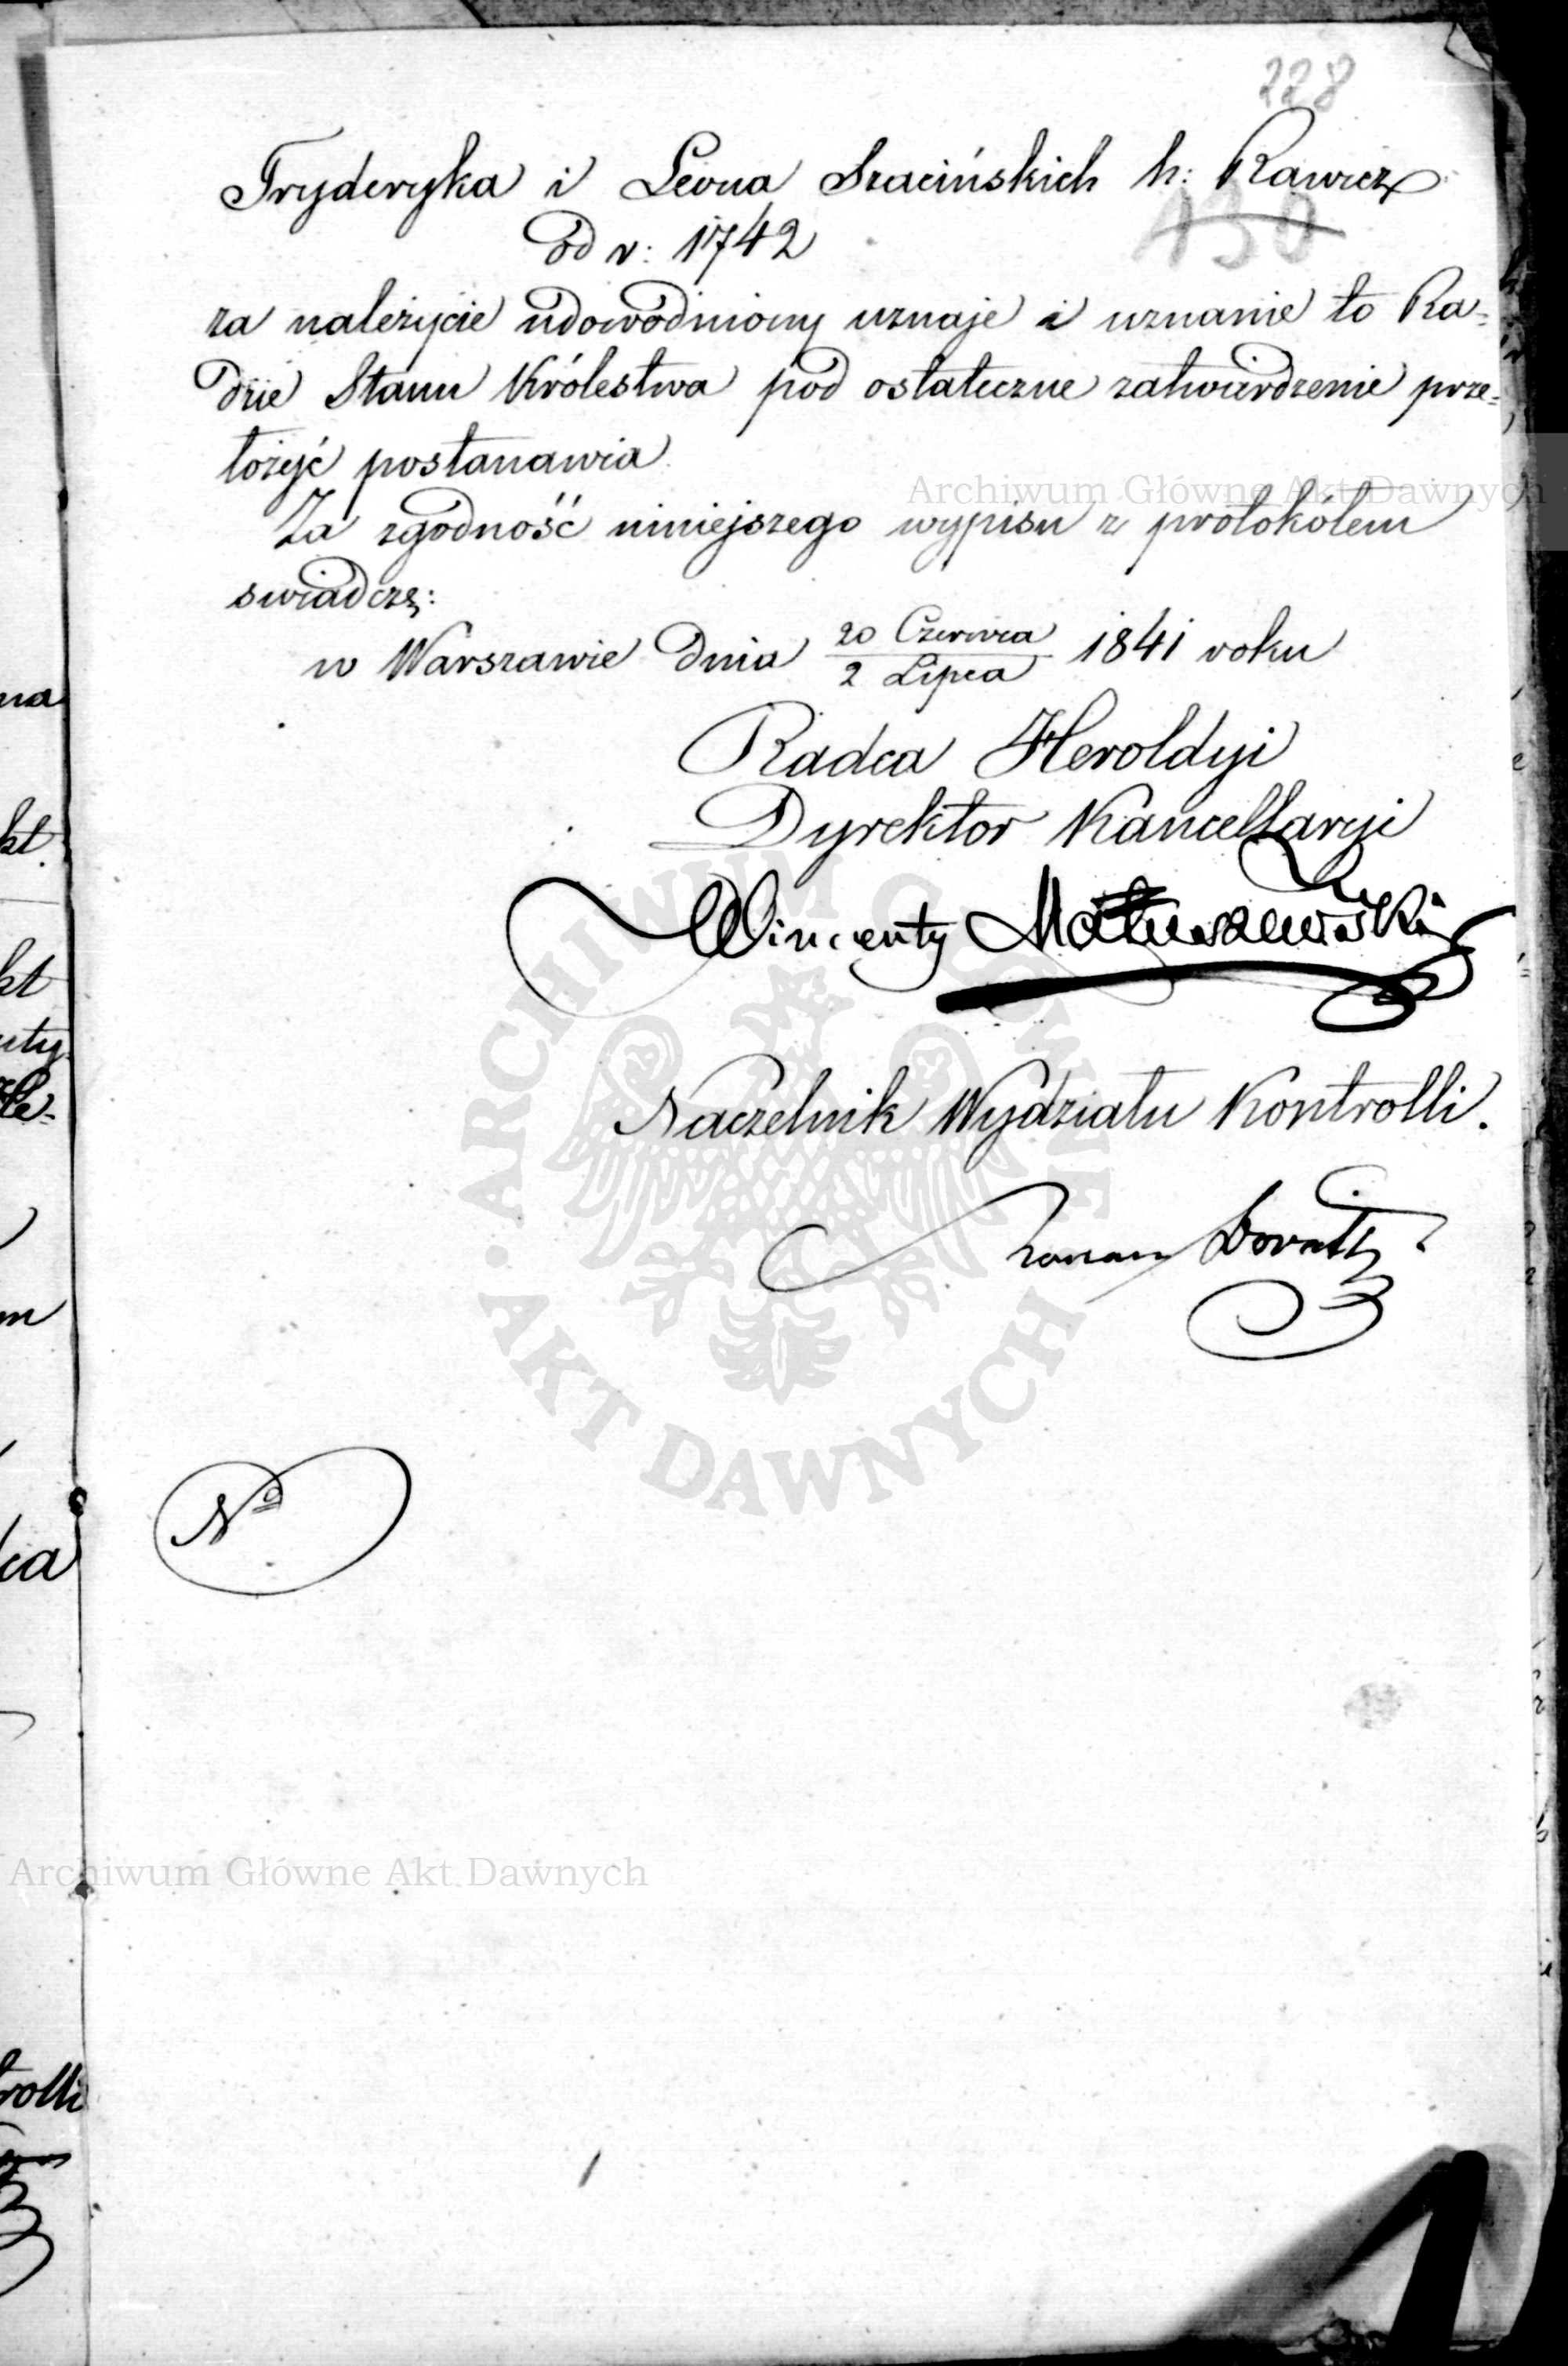 228
Fryderyka i Leona Szacińskich h: Rawicz
130
od r: 1742
za należycie udowodniony uznaje i uznanie to Ra=
dzie Stanu Królestwa pod ostateczne zatwierdzenie prze=
łożyć postanawia
Za zgodność niniejszego wypisu z protokółem
swiadczę:
w Warszawie dnia 20 Czerwca / 2 Lipca 1841 roku
Radca Heroldyi
Dyrektor Kancellaryi
Wincenty Matuszewski
Naczelnik Wydziału Kontrolli.
No
Archiwum Główne Akt Dawnych
ARCHIWUM GŁÓWNE AKT DAWNYCH
Archiwum Główne Akt Dawnych